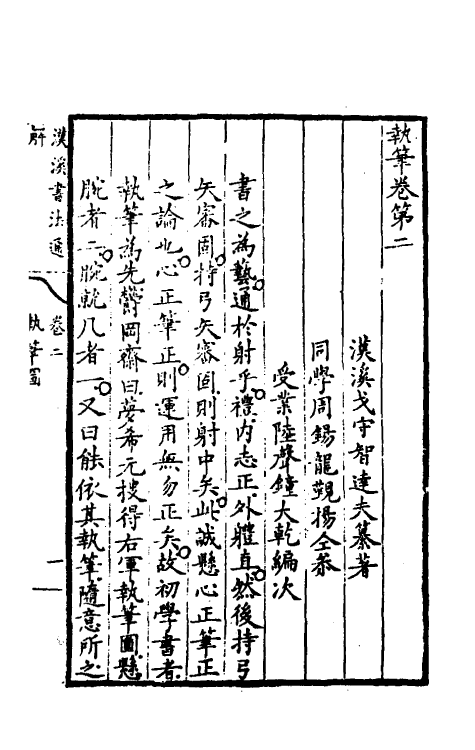 執筆卷第二
漢溪戈守智達夫纂著
同學周錫龍覲揚仝叅
受業陸聲鐘大乾編次
書之為藝通於射乎禮內志正外體直然後持弓
矢審固持弓矢審固則射中矣此誠懸心正筆正
之論也心正筆正則運用無勿正矣故初學書者
執筆為先欝岡齋曰夢希元搜得右軍執筆圖懸
腕者二腕就几者一又曰能依其執筆隨意所之
漢溪書法通解
卷二
執筆圖
一